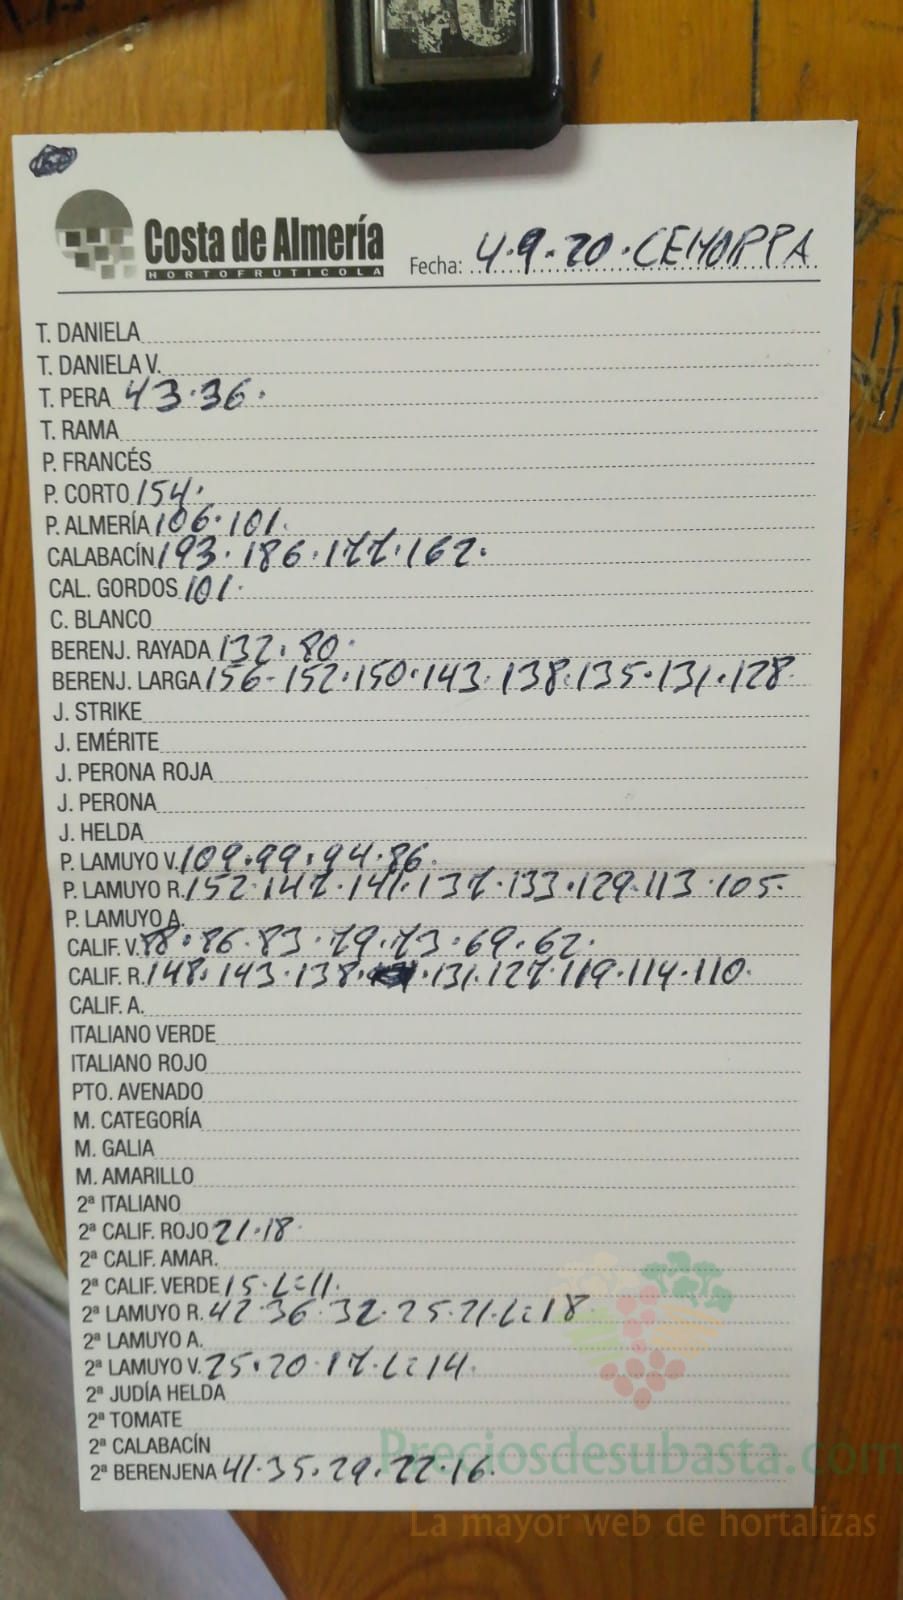 Costa de Almería
HORTOFRUTICOLA
Fecha: 4.9.20.CEHORPPA
T. DANIELA
T. DANIELA V.
T. PERA 43.36.
T. RAMA
P. FRANCÉS
P. CORTO 154.
P. ALMERÍA 106.101.
CALABACÍN 193.186.177.162.
CAL. GORDOS 101.
C. BLANCO
BERENJ. RAYADA 132.80.
BERENJ. LARGA 156-152.150.143.138.135.131.128.
J. STRIKE
J. EMÉRITE
J. PERONA ROJA
J. PERONA
J. HELDA
P. LAMUYO V. 109.99.94.86.
P. LAMUYO R. 152.147.141.137.133.129.113.105.
P. LAMUYO A.
CALIF. V. 88.86.83.79.73.69.62.
CALIF. R. 148.143.138.131.127.119.114.110.
CALIF. A.
ITALIANO VERDE
ITALIANO ROJO
PTO. AVENADO
M. CATEGORÍA
M. GALIA
M. AMARILLO
2ª ITALIANO
2ª CALIF. ROJO 21.18.
2ª CALIF. AMAR.
2ª CALIF. VERDE 15.L=11.
2ª LAMUYO R. 42.36.32.25.21.L=18.
2ª LAMUYO A.
2ª LAMUYO V. 25.20.17.L=14.
2ª JUDÍA HELDA
2ª TOMATE
2ª CALABACÍN
2ª BERENJENA 41.35.29.22.16.
Preciosdesubasta.com
La mayor web de hortalizas